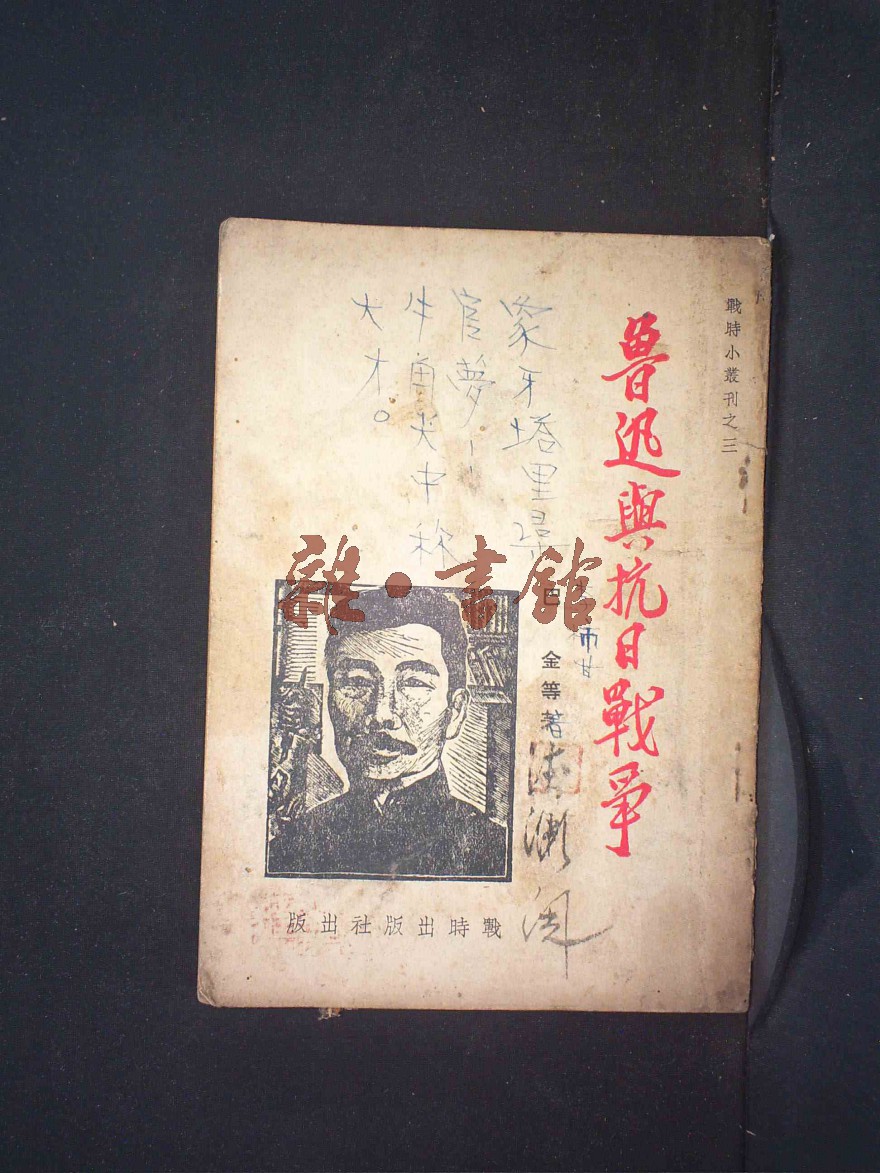 戰時小叢刊之三
魯迅與抗日戰爭
巴金等著
象牙塔里尋
官夢!
牛角尖中称
大才。
雜·書館
戰時出版社出版